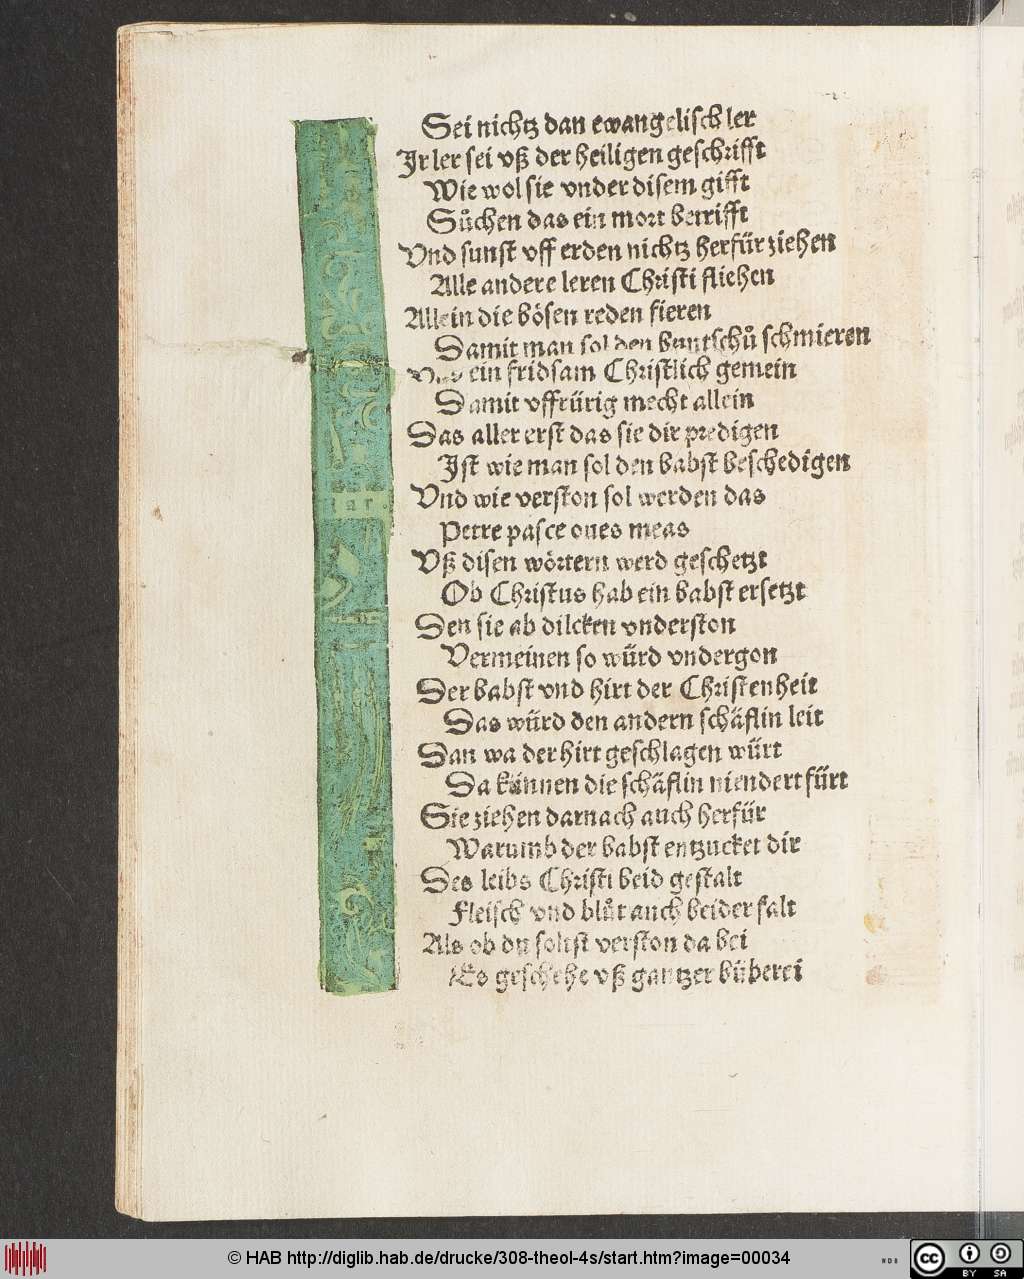 Sei nichtz dan ewangelisch ler
Ir ler sei vß der heiligen geschrifft
Wie wol sie vnder disem gifft
Sůchen das ein mort betrifft
Vnd sunst vff erden nichtz herfür ziehen
Alle andere leren Christi fliehen
Allein die bösen reden fieren
Damit man sol den buntschů schmieren
ein fridsam Christlich gemein
Damit vffrürig mecht allein
Das aller erst das sie dir predigen
Ist wie man sol den babst beschedigen
Vnd wie verston sol werden das
Petre pasce oues meas
Vß disen wörtern werd geschetzt
Ob Christus hab ein babst ersetzt
Den sie ab dilcken vnderston
Vermeinen so würd vndergon
Der babst vnd hirt der Christenheit
Das würd den andern schäflin leit
Dan wa der hirt geschlagen würt
Da kännen die schäflin niendert fürt
Sie ziehen darnach auch herfür
Warumb der babst entzucket dir
Des leibs Christi beid gestalt
Fleisch vnd blůt auch beider falt
Als ob du soltst verston da bei
Es geschehe vß gantzer büberei
tar.
© HAB http://diglib.hab.de/drucke/308-theol-4s/start.htm?image=00034
WDB
cc BY SA